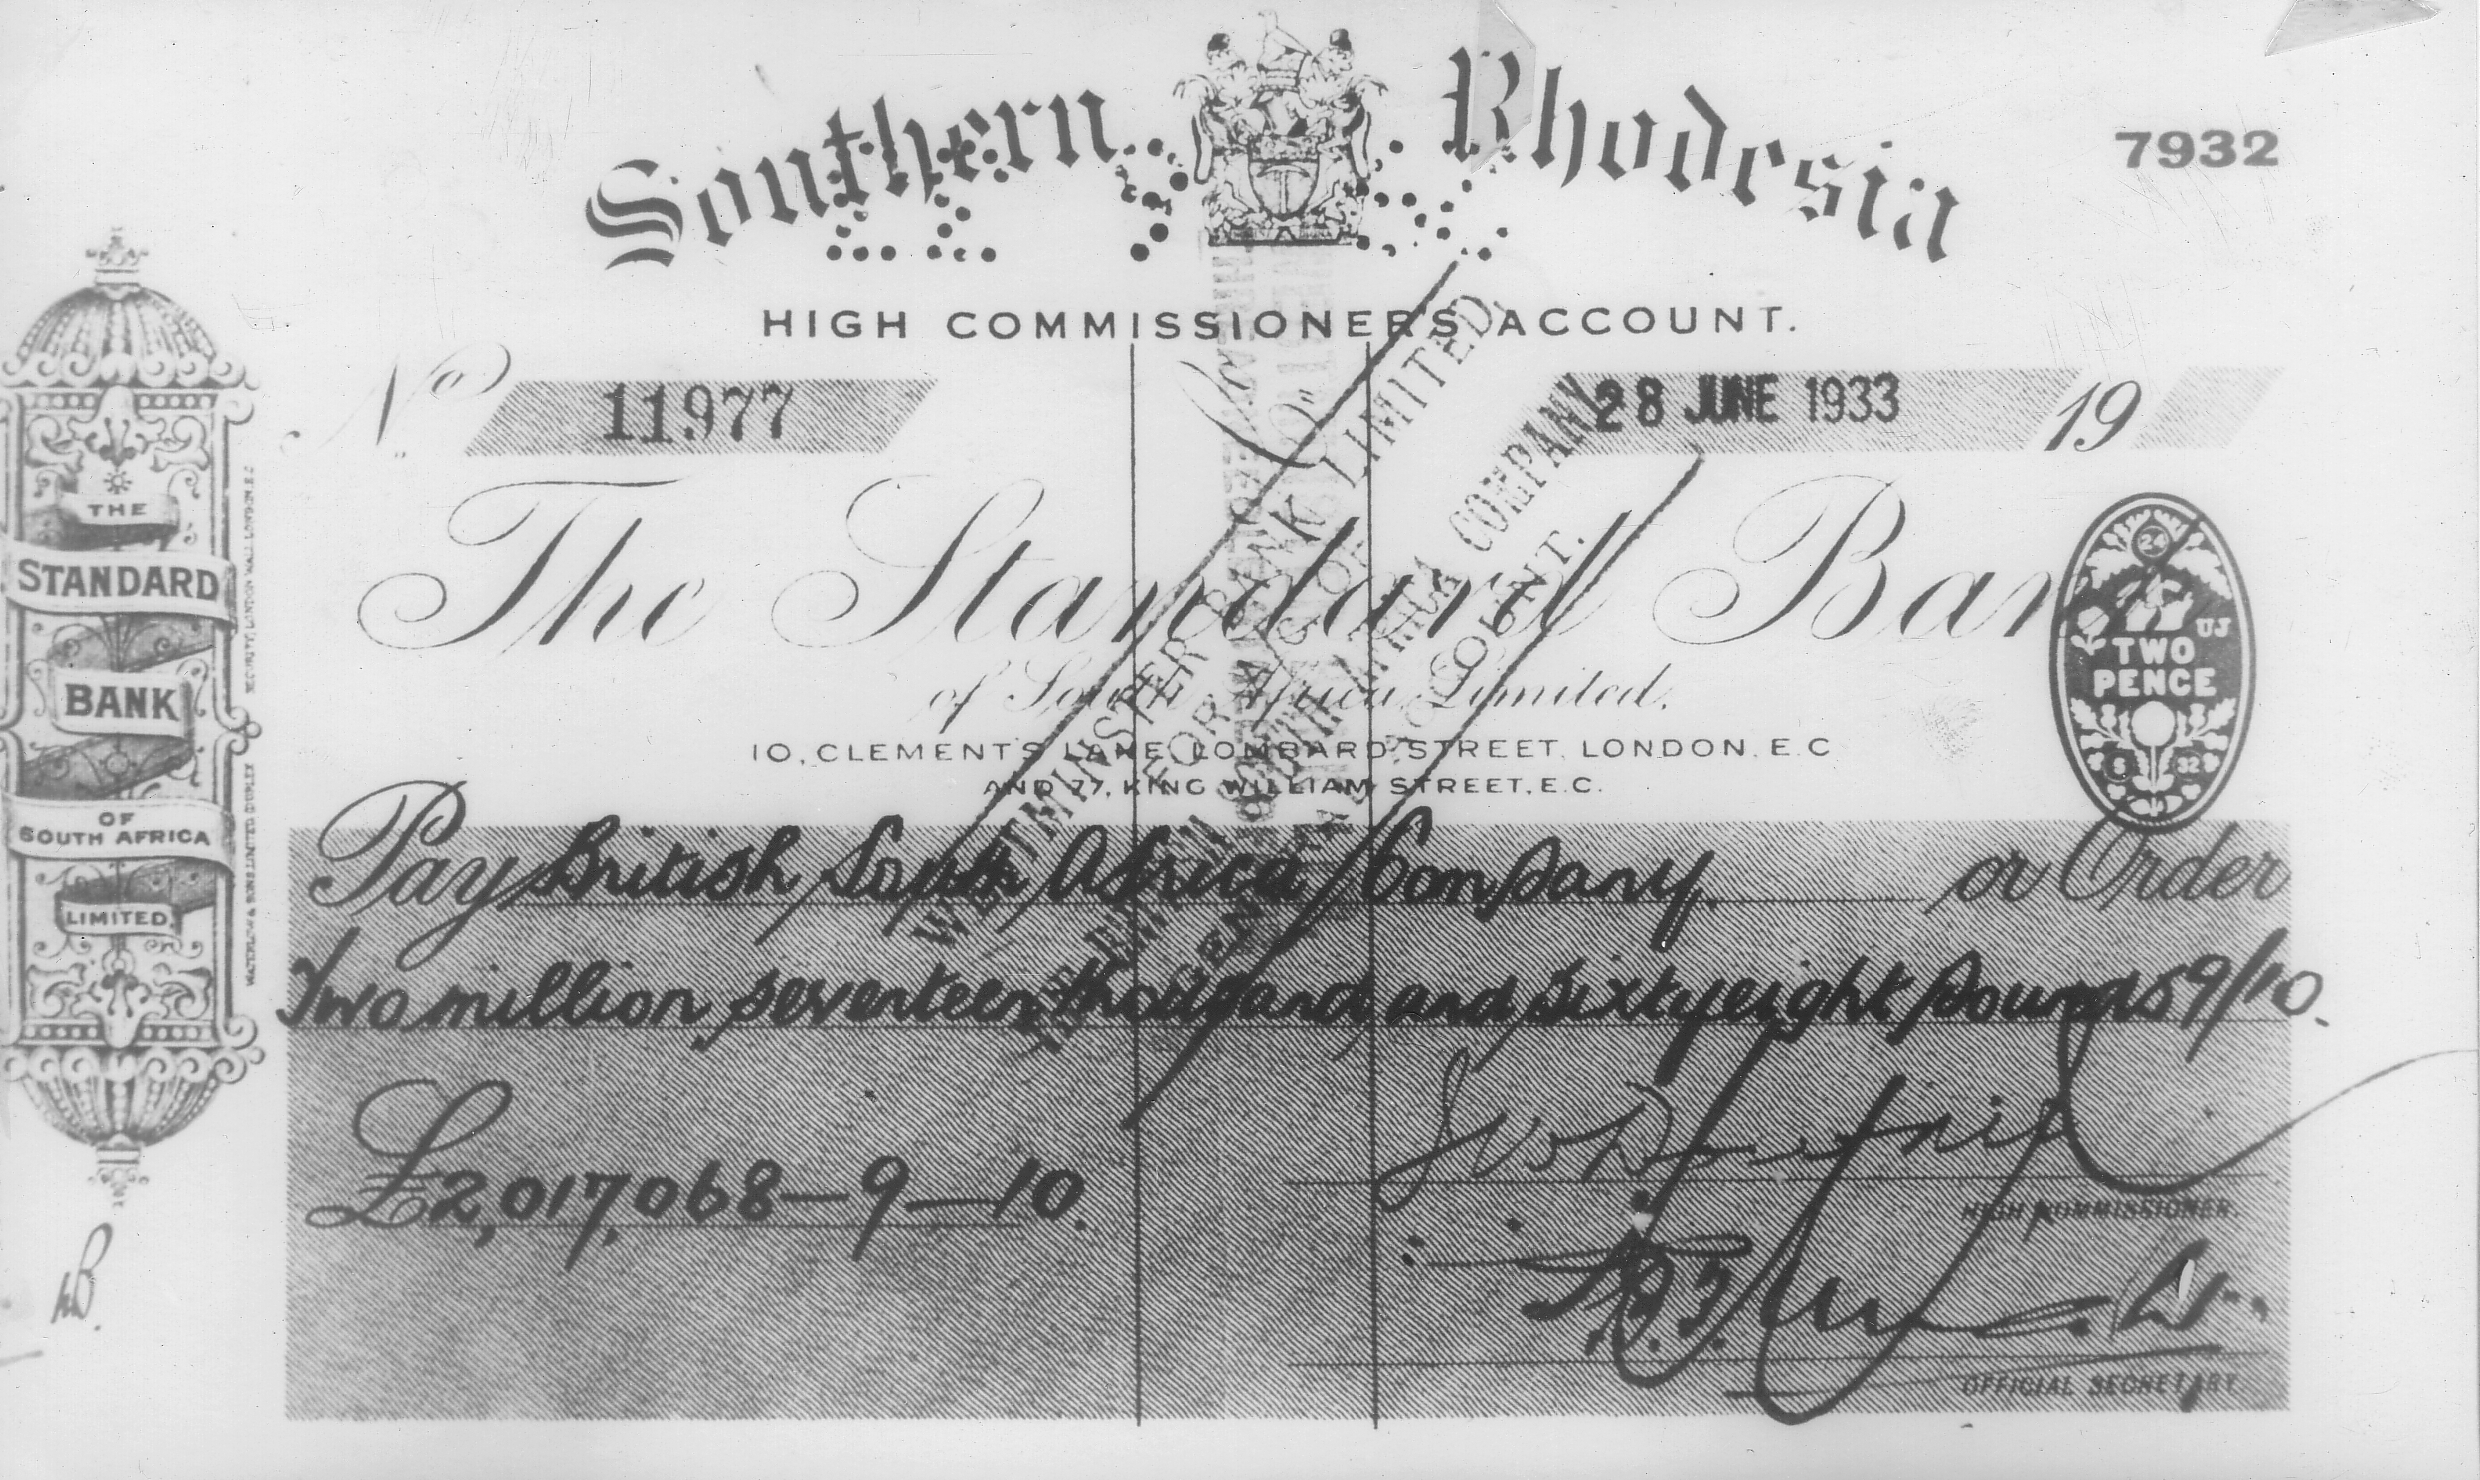 Southern Rhodesia
7932
HIGH COMMISSIONER'S ACCOUNT.
No 11977
28 JUNE 1933 19
The Standard Bank
of South Africa Limited.
10, CLEMENT'S LANE, LOMBARD STREET, LONDON, E.C
AND 77, KING WILLIAM STREET, E.C.
Pay British South Africa Company or Order
Two million seventeen thousand and sixty eight pounds 9/10.
£2,017,068-9-10.
HIGH COMMISSIONER.
OFFICIAL SECRETARY
THE
STANDARD
BANK
OF
SOUTH AFRICA
LIMITED.
WATERLOW & SONS LIMITED LONDON WALL LONDON E.C
24
UJ
TWO
PENCE
32
WESTMINSTER BANK LIMITED
FOR A/C OF
THE BRITISH SOUTH AFRICA COMPANY
GENERAL ACCOUNT.